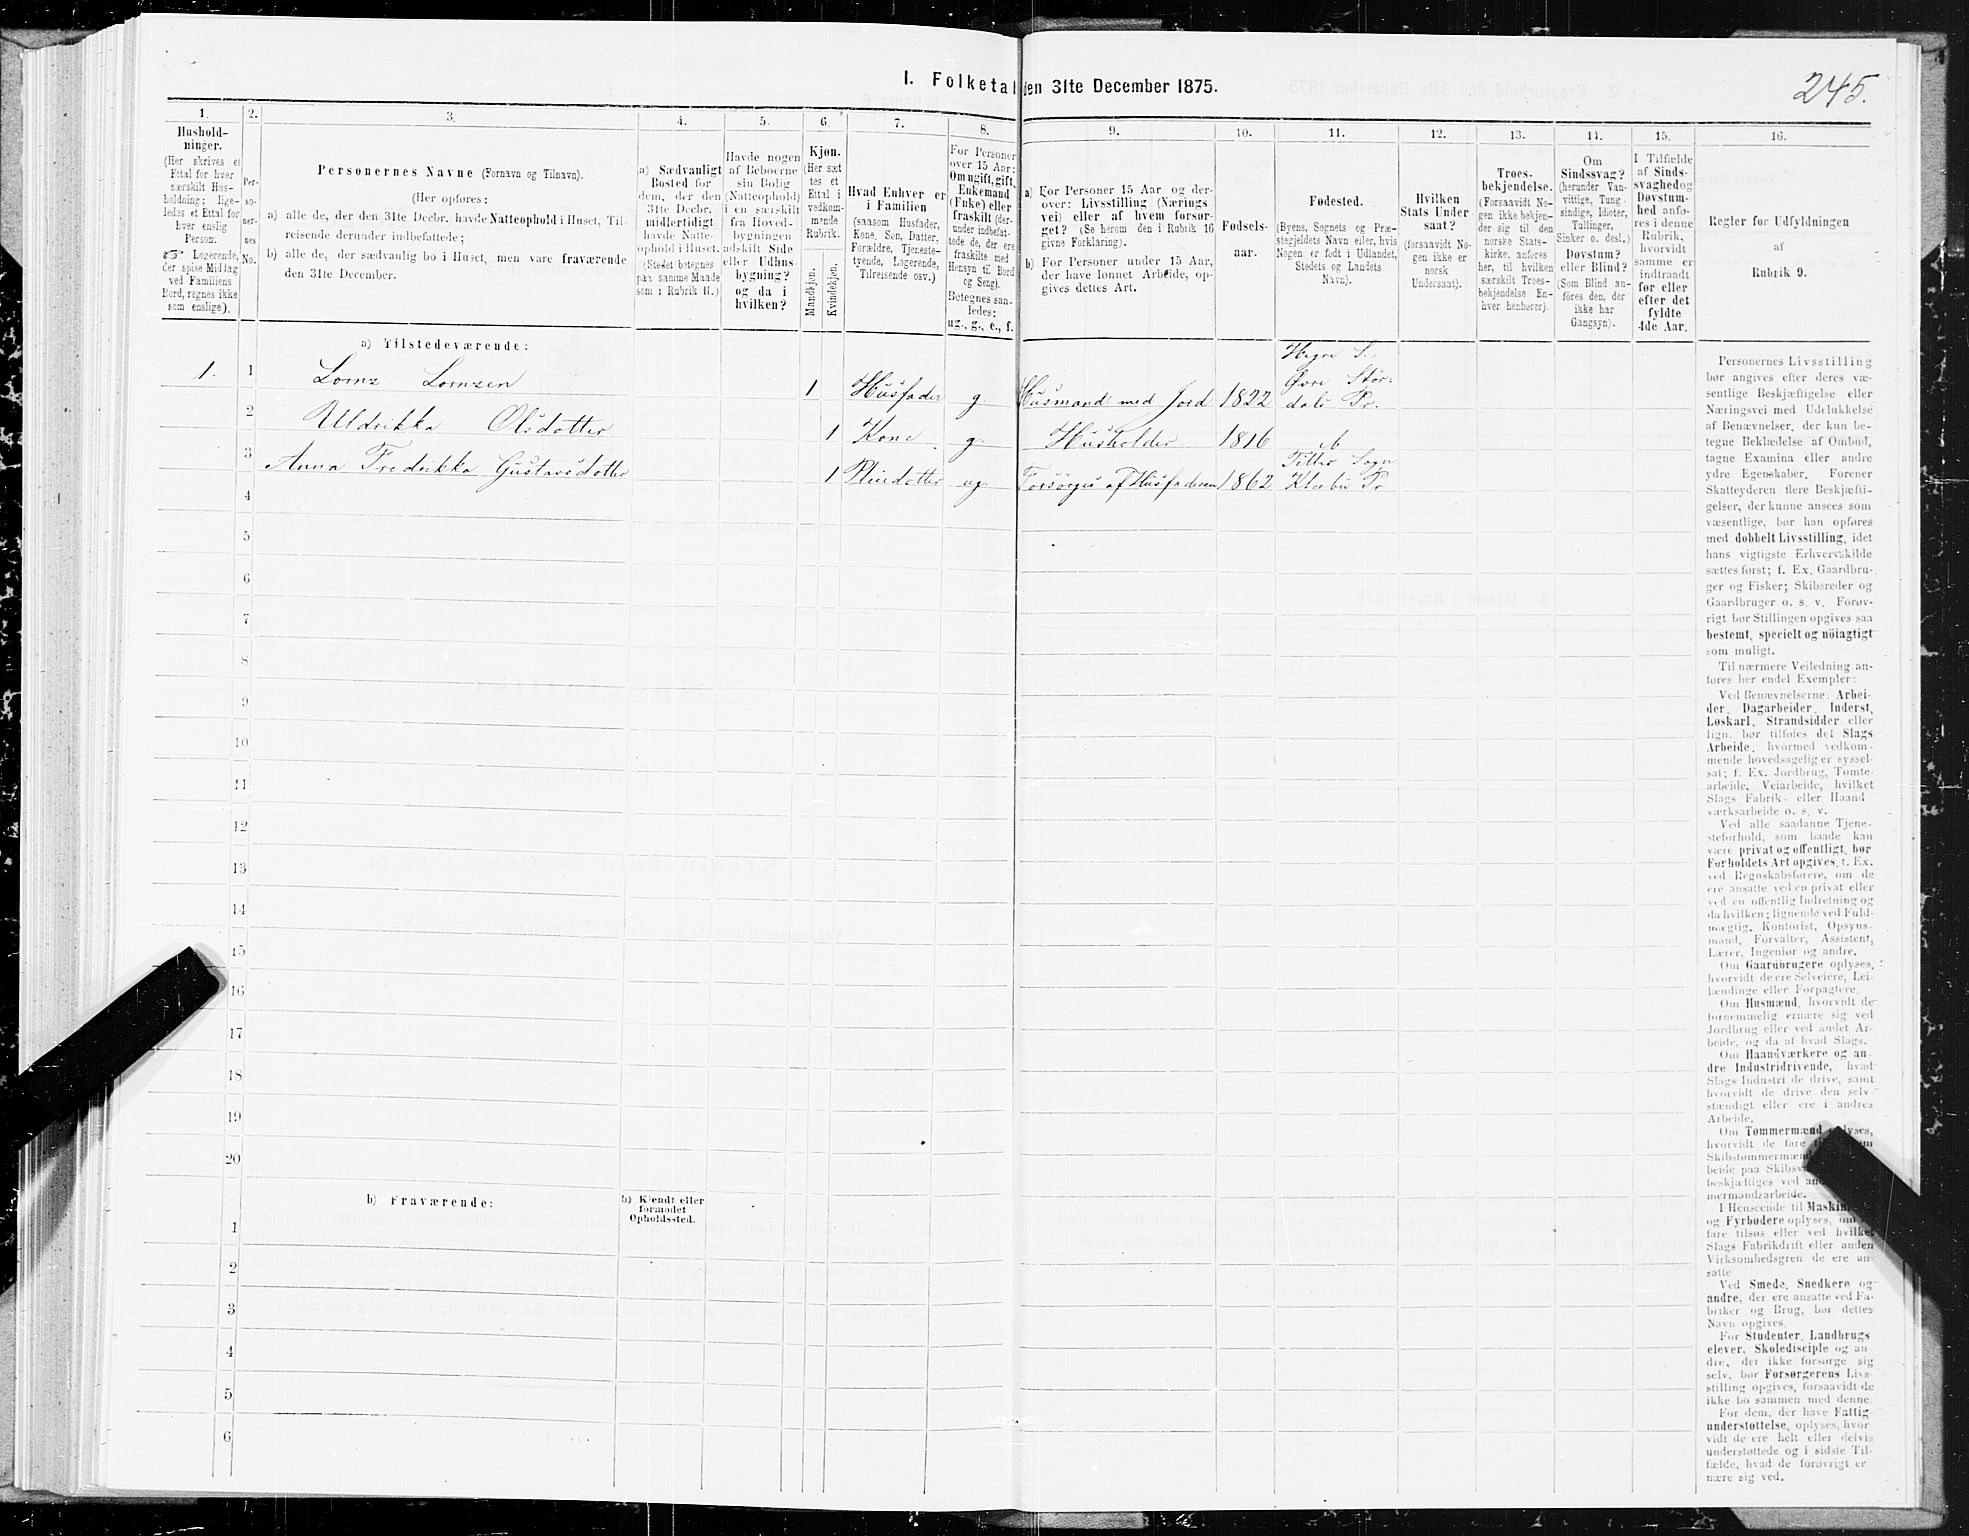 I. Folketal den 31te December 1875.
245.
1.
2.
3.
4.
5.
6.
7.
8.
9.
10.
11.
12.
13.
14.
15.
16.
Hushold-
ninger.
(Her skrives et
Ettal for hver
særskilt Hus-
holdning; lige-
ledes et Ettal for
hver enslig
Person.
☞ Logerende,
der spise Middag
ved Familiens
Bord, regnes ikke
som enslige).
Per-
so-
ner-
nes
No.
Personernes Navne (Fornavn og Tilnavn).
(Her opføres:
a) alle de, der den 31te Decbr. havde Natteophold i Huset, Til-
reisende derunder indbefattede;
b) alle de, der sædvanlig bo i Huset, men vare fraværende
den 31te December.
a) Sædvanligt
Bosted for
dem, der den
31te Decbr.
midlertidigt
havde Natte-
ophold i Huset.
(Stedet betegnes
paa samme Maade
som i Rubrik 11.)
Havde nogen
af Beboerne
sin Bolig
(Natteophold)
i en særskilt
fra Hoved-
bygningen
adskilt Side
eller Udhus-
bygning?
og da i
hvilken?
Kjøn.
(Her sæt-
tes et
Ettal i
vedkom-
mende
Rubrik.
Mandkjøn.
Kvindekjøn.
Hvad Enhver er
i Familien
(saasom Husfader,
Kone, Søn, Datter,
Forældre, Tjeneste-
tyende, Logerende,
Tilreisende osv.)
For Personer
over 15 Aar:
Om ugift, gift,
Enkemand
(Enke) eller
fraskilt (der-
under indbefat-
tede de, der ere
fraskilte med
Hensyn til Bord
og Seng).
Betegnes saa-
ledes:
ug., g., e., f.
a) For Personer 15 Aar og der-
over: Livsstilling (Nærings-
vei) eller af hvem forsør-
get? (Se herom den i Rubrik 16
givne Forklaring).
b) For Personer under 15 Aar,
der have lønnet Arbeide, op-
gives dettes Art.
Fødsels-
aar.
Fødested.
(Byens, Sognets og Præ-
stegjeldets Navn eller, hvis
Nogen er født i Udlandet,
Stedets og Landets
Navn).
Hvilken
Stats Under-
saat?
(forsaavidt No-
gen ikke er
norsk
Undersaat).
Troes-
bekjendelse.
(Forsaavidt No-
gen ikke bekjen-
der sig til den
norske Stats-
kirke, anføres
her, til hvilken
særskilt Troes-
bekjendelse En-
hver henhører).
Om
Sindssvag?
(herunder Van-
vittige, Tung-
sindige, Idioter,
Tullinger,
Sinker o. desl.)
Døvstum?
eller Blind?
(Som Blind an-
føres den, der
ikke har
Gangsyn).
I Tilfælde
af Sinds-
svaghed og
Døvstum-
hed anfø-
res i denne
Rubrik,
hvorvidt
samme er
indtraadt
før eller
efter det
fyldte
4de Aar.
Regler for Udfyldningen
af
Rubrik 9.
a) Tilstedeværende:
1. 1 Lornz Lornzen 1 Husfader g. Husmand med Jord 1822 Hegre S. Øvre Stør-
dals Pr.
2 Uldrikka Olsdotter 1 Kone g. Husholder 1816
3 Anna Fredrikka Gustavsdotter 1 Pleiedotter ug. Forsørges af Husfaderen 1862 Tiller Sogn
Klæbu Pr.
4
5
6
7
8
9
10
11
12
13
14
15
16
17
18
19
20
b) Fraværende:
b) Kjendt eller
formodet
Opholdssted.
1
2
3
4
5
6
Personernes Livsstilling
bør angives efter deres væ-
sentlige Beskjæftigelse eller
Næringsvei med Udelukkelse
af Benævnelser, der kun be-
tegne Beklædelse af Ombud,
tagne Examina eller andre
ydre Egenskaber. Forener
Skatteyderen flere Beskjæfti-
gelser, der kunne ansees som
væsentlige, bør han opføres
med dobbelt Livsstilling, idet
hans vigtigste Erhvervskilde
sættes først; f. Ex. Gaardbru-
ger og Fisker; Skibsreder og
Gaardbruger o. s. v. Forøv-
rigt bør Stillingen opgives saa
bestemt, specielt og nöiagtigt
som muligt.
Til nærmere Veiledning an-
føres her endel Exempler:
Ved Benævnelserne: Arbei-
der, Dagarbeider, Inderst,
Løskarl, Strandsidder eller
lign. bør tilføies det Slags
Arbeide, hvormed vedkom-
mende hovedsagelig er syssel-
sat; f. Ex. Jordbrug, Tomte-
arbeide, Veiarbeide, hvilket
Slags Fabrik- eller Haand-
værksarbeide o. s. v.
Ved alle saadanne Tjene-
steforhold, som baade kan
være privat og offentligt, bør
Forholdets Art opgives, f. Ex.
ved Regnskabsførere, om de
ere ansatte ved en privat eller
ved en offentlig Indretning og
da hvilken; lignende ved Fuld-
mægtig, Kontorist, Opsyns-
mand, Forvalter, Assistent,
Lærer, Ingeniør og andre.
Om Gaardbrugere oplyses,
hvorvidt de ere Selveiere, Lei-
lændinge eller Forpagtere.
Om Husmænd, hvorvidt de
fornemmelig ernære sig ved
Jordbrug eller ved andet Ar-
beide, og da af hvad Slags.
Om Haandværkere og an-
dre Industridrivende, hvad
Slags Industri de drive, samt
hvorvidt de drive den selv-
stændigt eller ere i andres
Arbeide.
Om Tømmermænd oplyses,
hvorvidt de fare
Skibstømmermænd
beide paa
beskjæftiges ved
mermandsarbeide.
I Henseende til
og Fyrbødere oplyses, om
fare tilsøs eller ved hvilket
Slags Fabrikdrift eller anden
Virksomhedsgren de ere an-
satte.
Ved Smede, Snedkere og
andre, der ere ansatte ved Fa-
briker og Brug, bør dettes
Navn opgives.
For Studenter, Landbrugs-
elever, Skoledisciple og an-
dre, der ikke forsørge sig
selv, bør Forsørgerens Livs-
stilling opgives, forsaavidt de
ikke bo sammen med denne.
For dem, der have Fattig-
understøttelse, oplyses, hvor-
vidt de ere helt eller delvis
understøttede og i sidste Til-
fælde, hvad de forøvrigt er-
nære sig ved.